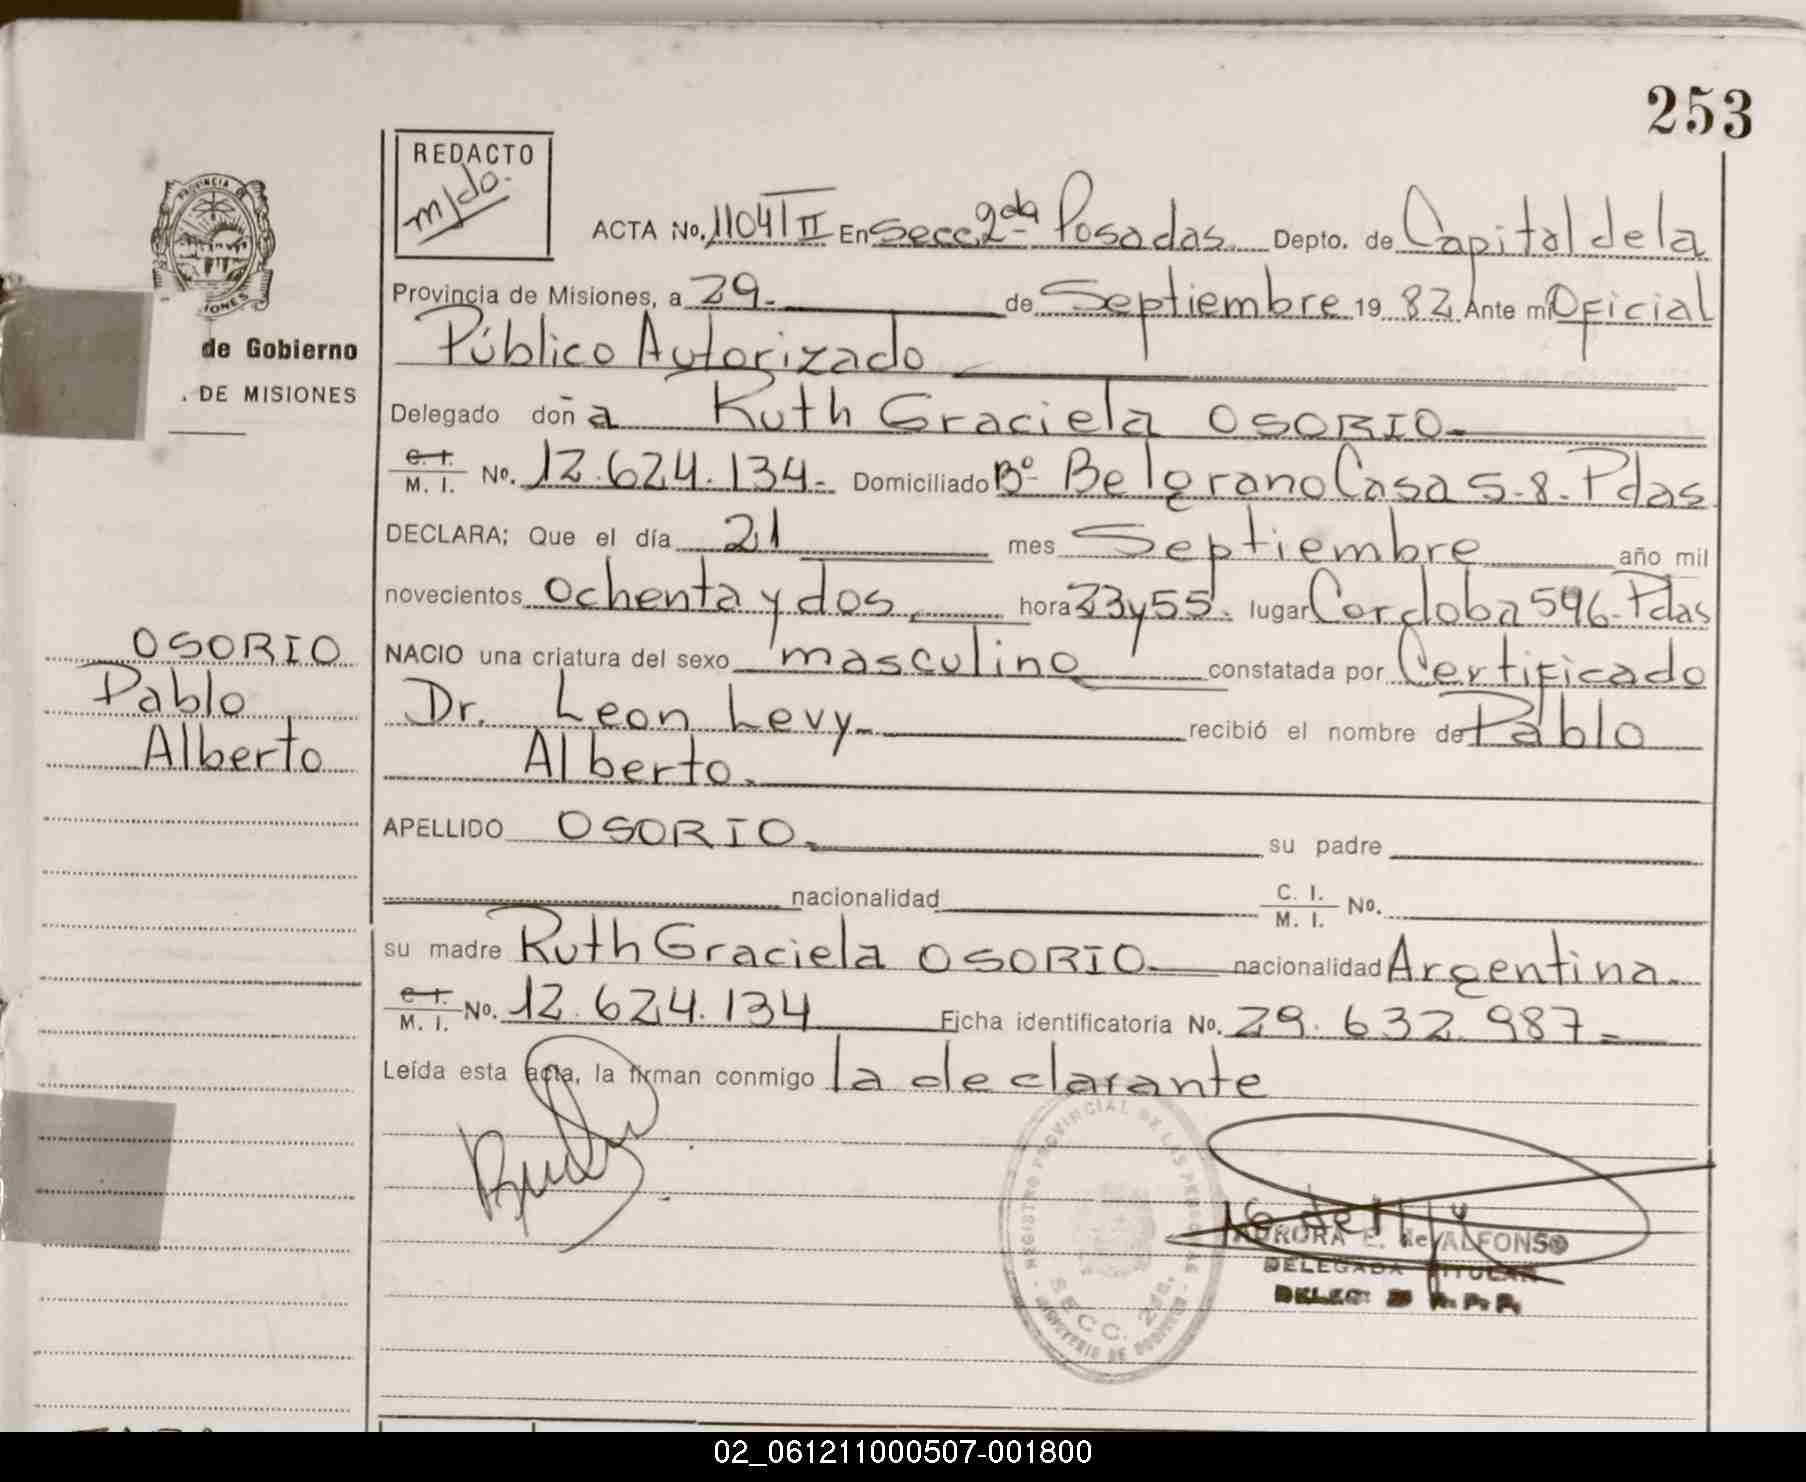 253
REDACTO
m/do.
PROVINCIA DE
MISIONES
de Gobierno
. DE MISIONES
ACTA No. 1104 T II En Secc. 2da Posadas Depto. de Capital de la
Provincia de Misiones, a 29.- de Septiembre 19 82 Ante mi Oficial
Público Autorizado
Delegado doña Ruth Graciela OSORIO.-
C. I. / M. I. No. 12.624.134.- Domiciliado Bº Belgrano Casa 5-8. Pdas
DECLARA; Que el día 21 mes Septiembre año mil
novecientos ochenta y dos hora 23 y 55. lugar Cordoba 596. Pdas
NACIO una criatura del sexo masculino constatada por Certificado
Dr. Leon Levy.- recibió el nombre de Pablo
Alberto.-
APELLIDO OSORIO.- su padre
nacionalidad C. I. / M. I. No.
su madre Ruth Graciela OSORIO.- nacionalidad Argentina.-
C. I. / M. I. No. 12.624.134 Ficha identificatoria No. 29.632.987.-
Leída esta acta, la firman conmigo la declarante
OSORIO
Pablo
Alberto
REGISTRO PROVINCIAL DE LAS PERSONAS
SECC. 2da.
MINISTERIO DE GOBIERNO
AURORA E. de ALFONSO
DELEGADA TITULAR
02_061211000507-001800